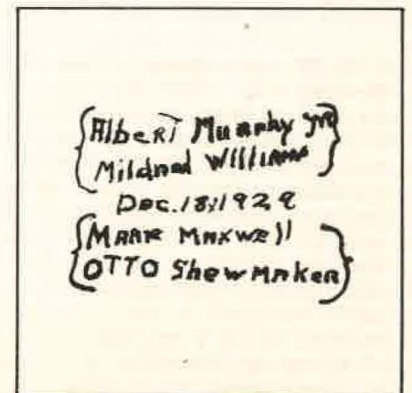 {Albert Murphy Jr}
{Mildred Williams}
Dec. 18, 1929
{Mark Maxwell
OTTO Shewmaker}